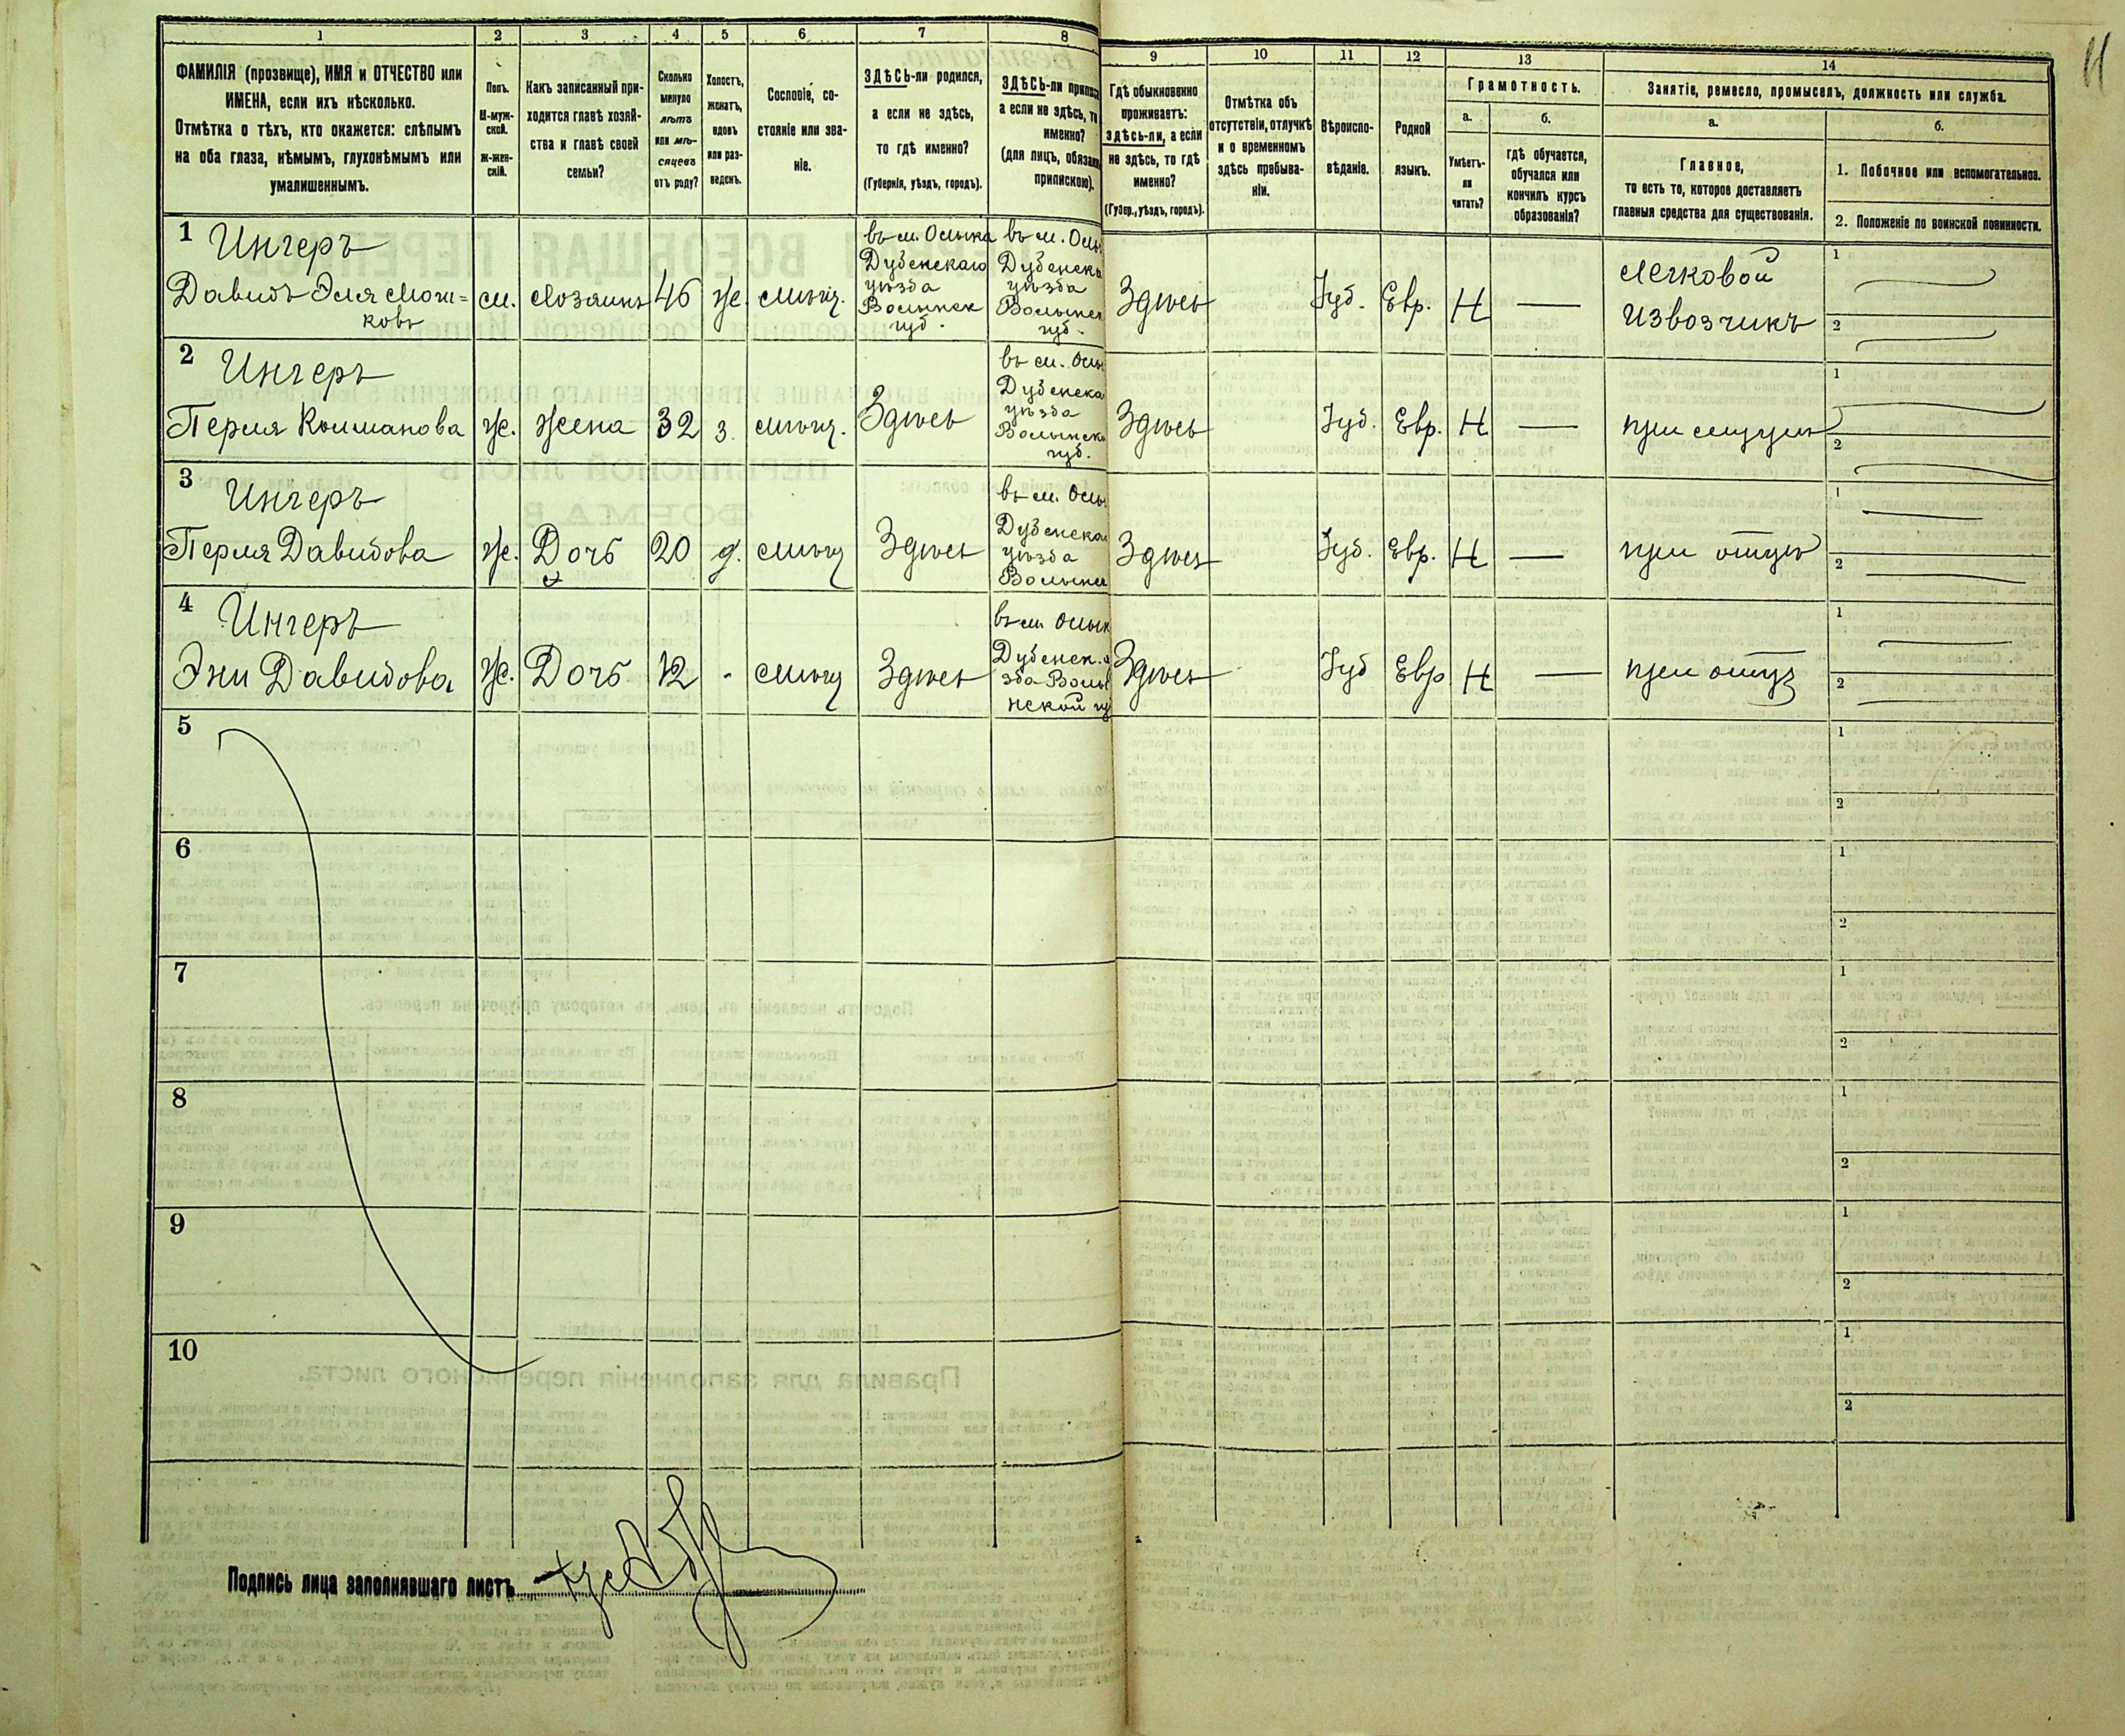 1
2
3
4
5
6
7
8
ФАМИЛІЯ (прозвище), ИМЯ и ОТЧЕСТВО или
ИМЕНА, если ихъ нѣсколько.
Отмѣтка о тѣхъ, кто окажется: слѣпымъ
на оба глаза, нѣмымъ, глухонѣмымъ или
умалишеннымъ.
Полъ.
М-муж-
ской.
Ж-жен-
скій.
Какъ записанный при-
ходится главѣ хозяй-
ства и главѣ своей
семьи?
Сколько
минуло
лѣтъ
или мѣ-
сяцевъ
отъ роду?
Холостъ,
женатъ,
вдовъ
или раз-
веденъ.
Сословіе, со-
стояніе или зва-
ніе.
ЗДѢСЬ-ли родился,
а если не здѣсь,
то гдѣ именно?
(Губернія, уѣздъ, городъ).
ЗДѢСЬ-ли
а если не здѣсь,
именно?
(для лицъ,
припискою).
9
10
11
12
13
14
Гдѣ обыкновенно
проживаетъ:
здѣсь-ли, а если
не здѣсь, то гдѣ
именно?
(Губер., уѣздъ, городъ).
Отмѣтка объ
отсутствіи, отлучкѣ
и о временномъ
здѣсь пребыва-
ніи.
Вѣроиспо-
вѣданіе.
Родной
языкъ.
Грамотность.
а.
б.
Умѣетъ-
ли
читать?
гдѣ обучается,
обучался или
кончилъ курсъ
образованія?
Занятіе, ремесло, промыселъ, должность или служба.
а.
б.
Главное,
то есть то, которое доставляетъ
главныя средства для существованія.
1. Побочное или вспомогательное.
2. Положеніе по воинской повинности.
1 Ингеръ
Давидъ Эля Мош=
ковъ
м.
Хозяинъ
46
же
мѣщ.
въ м. Олыка
Дубенскаго
уѣзда
Волынск
губ.
въ м.
Дубенска
уѣзда
губ.
Здѣсь
Іуд.
Евр.
Н
—
легковой
извозчикъ
1
2
2 Ингеръ
Перля Колманова
же.
жена
32
з.
мѣщ.
Здѣсь
въ м.
Дубенска
уѣзда
губ.
Здѣсь
Іуд.
Евр.
Н
—
при
1
2
3 Ингеръ
Перля Давидова
же.
Дочь
20
д.
мѣщ
Здѣсь
въ м.
уѣзда
Здѣсь
Іуд.
Евр.
Н
—
при отцѣ
1
2
4 Ингеръ
Эни Давидова
же.
Дочь
12
-
мѣщ
Здѣсь
въ м.
Дубенск.
нской
Здѣсь
Іуд
Евр
Н
—
при отцѣ
1
2
5
1
2
6
1
2
7
1
2
8
1
2
9
1
2
10
1
2
Подпись лица заполнявшаго листъ